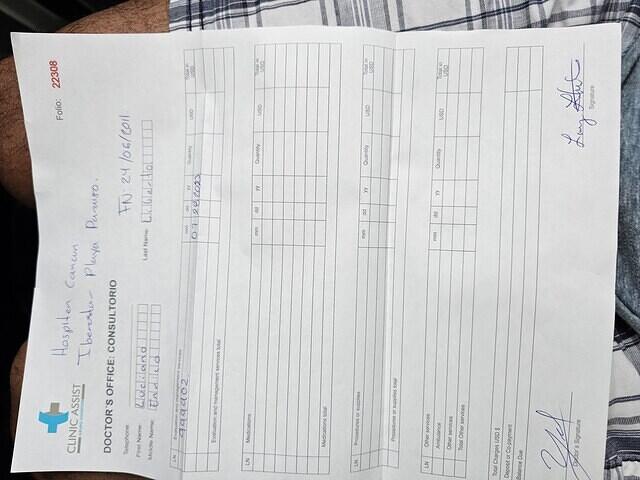 Hospiten Cancun
Iberostar - Playa Paraiso.
Folio: 22308
CLINIC ASSIST
DOCTOR'S OFFICE: CONSULTORIO
FN: 24/06/2011
Telephone:
First Name: Luciano
Last Name:
Middle Name:
LN mm dd yy Quantity USD Total in USD
Evaluation and management services total
LN Medications mm dd yy Quantity USD Total in USD
Medications total
LN Procedures or supplies mm dd yy Quantity USD Total in USD
Procedures or supplies total
LN Other services mm dd yy Quantity USD Total in USD
Ambulance
Other services
Total Other services
Total Charges USD $
Deposit or Co payment
Balance Due
Doctor's Signature
Signature